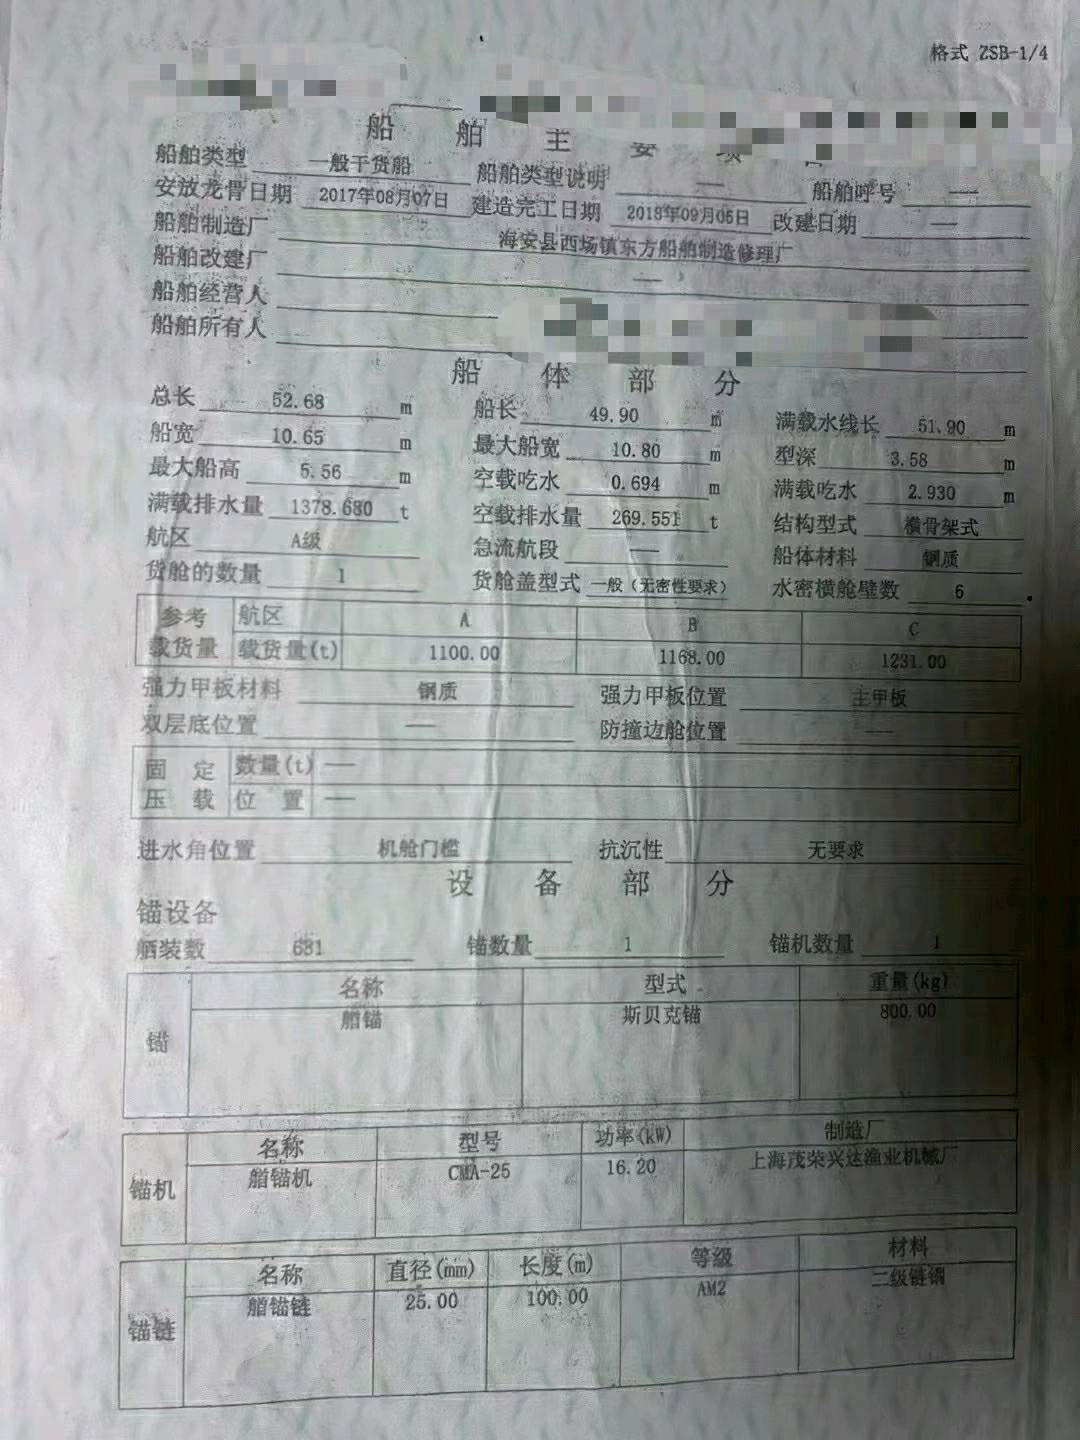 格式 ZSB-1/4
船 舶 主 要 项 目
船舶类型 一般干货船 船舶类型说明 — 船舶呼号 —
安放龙骨日期 2017年08月07日 建造完工日期 2018年09月05日 改建日期 —
船舶制造厂 海安县西场镇东方船舶制造修理厂
船舶改建厂 —
船舶经营人
船舶所有人
船 体 部 分
总长 52.68 m 船长 49.90 m 满载水线长 51.90 m
船宽 10.65 m 最大船宽 10.80 m 型深 3.58 m
最大船高 5.56 m 空载吃水 0.694 m 满载吃水 2.930 m
满载排水量 1378.680 t 空载排水量 269.551 t 结构型式 横骨架式
航区 A级 急流航段 — 船体材料 钢质
货舱的数量 1 货舱盖型式 一般(无密性要求) 水密横舱壁数 6
参考 航区 A B C
载货量 载货量(t) 1100.00 1168.00 1231.00
强力甲板材料 钢质 强力甲板位置 主甲板
双层底位置 — 防撞边舱位置 —
固定 数量(t) —
压载 位置 —
进水角位置 机舱门槛 抗沉性 无要求
设 备 部 分
锚设备
舾装数 681 锚数量 1 锚机数量 1
名称 型式 重量(kg)
锚 艏锚 斯贝克锚 800.00
名称 型号 功率(kW) 制造厂
锚机 艏锚机 CMA-25 16.20 上海茂荣兴达渔业机械厂
名称 直径(mm) 长度(m) 等级 材料
锚链 艏锚链 25.00 100.00 AM2 二级链钢